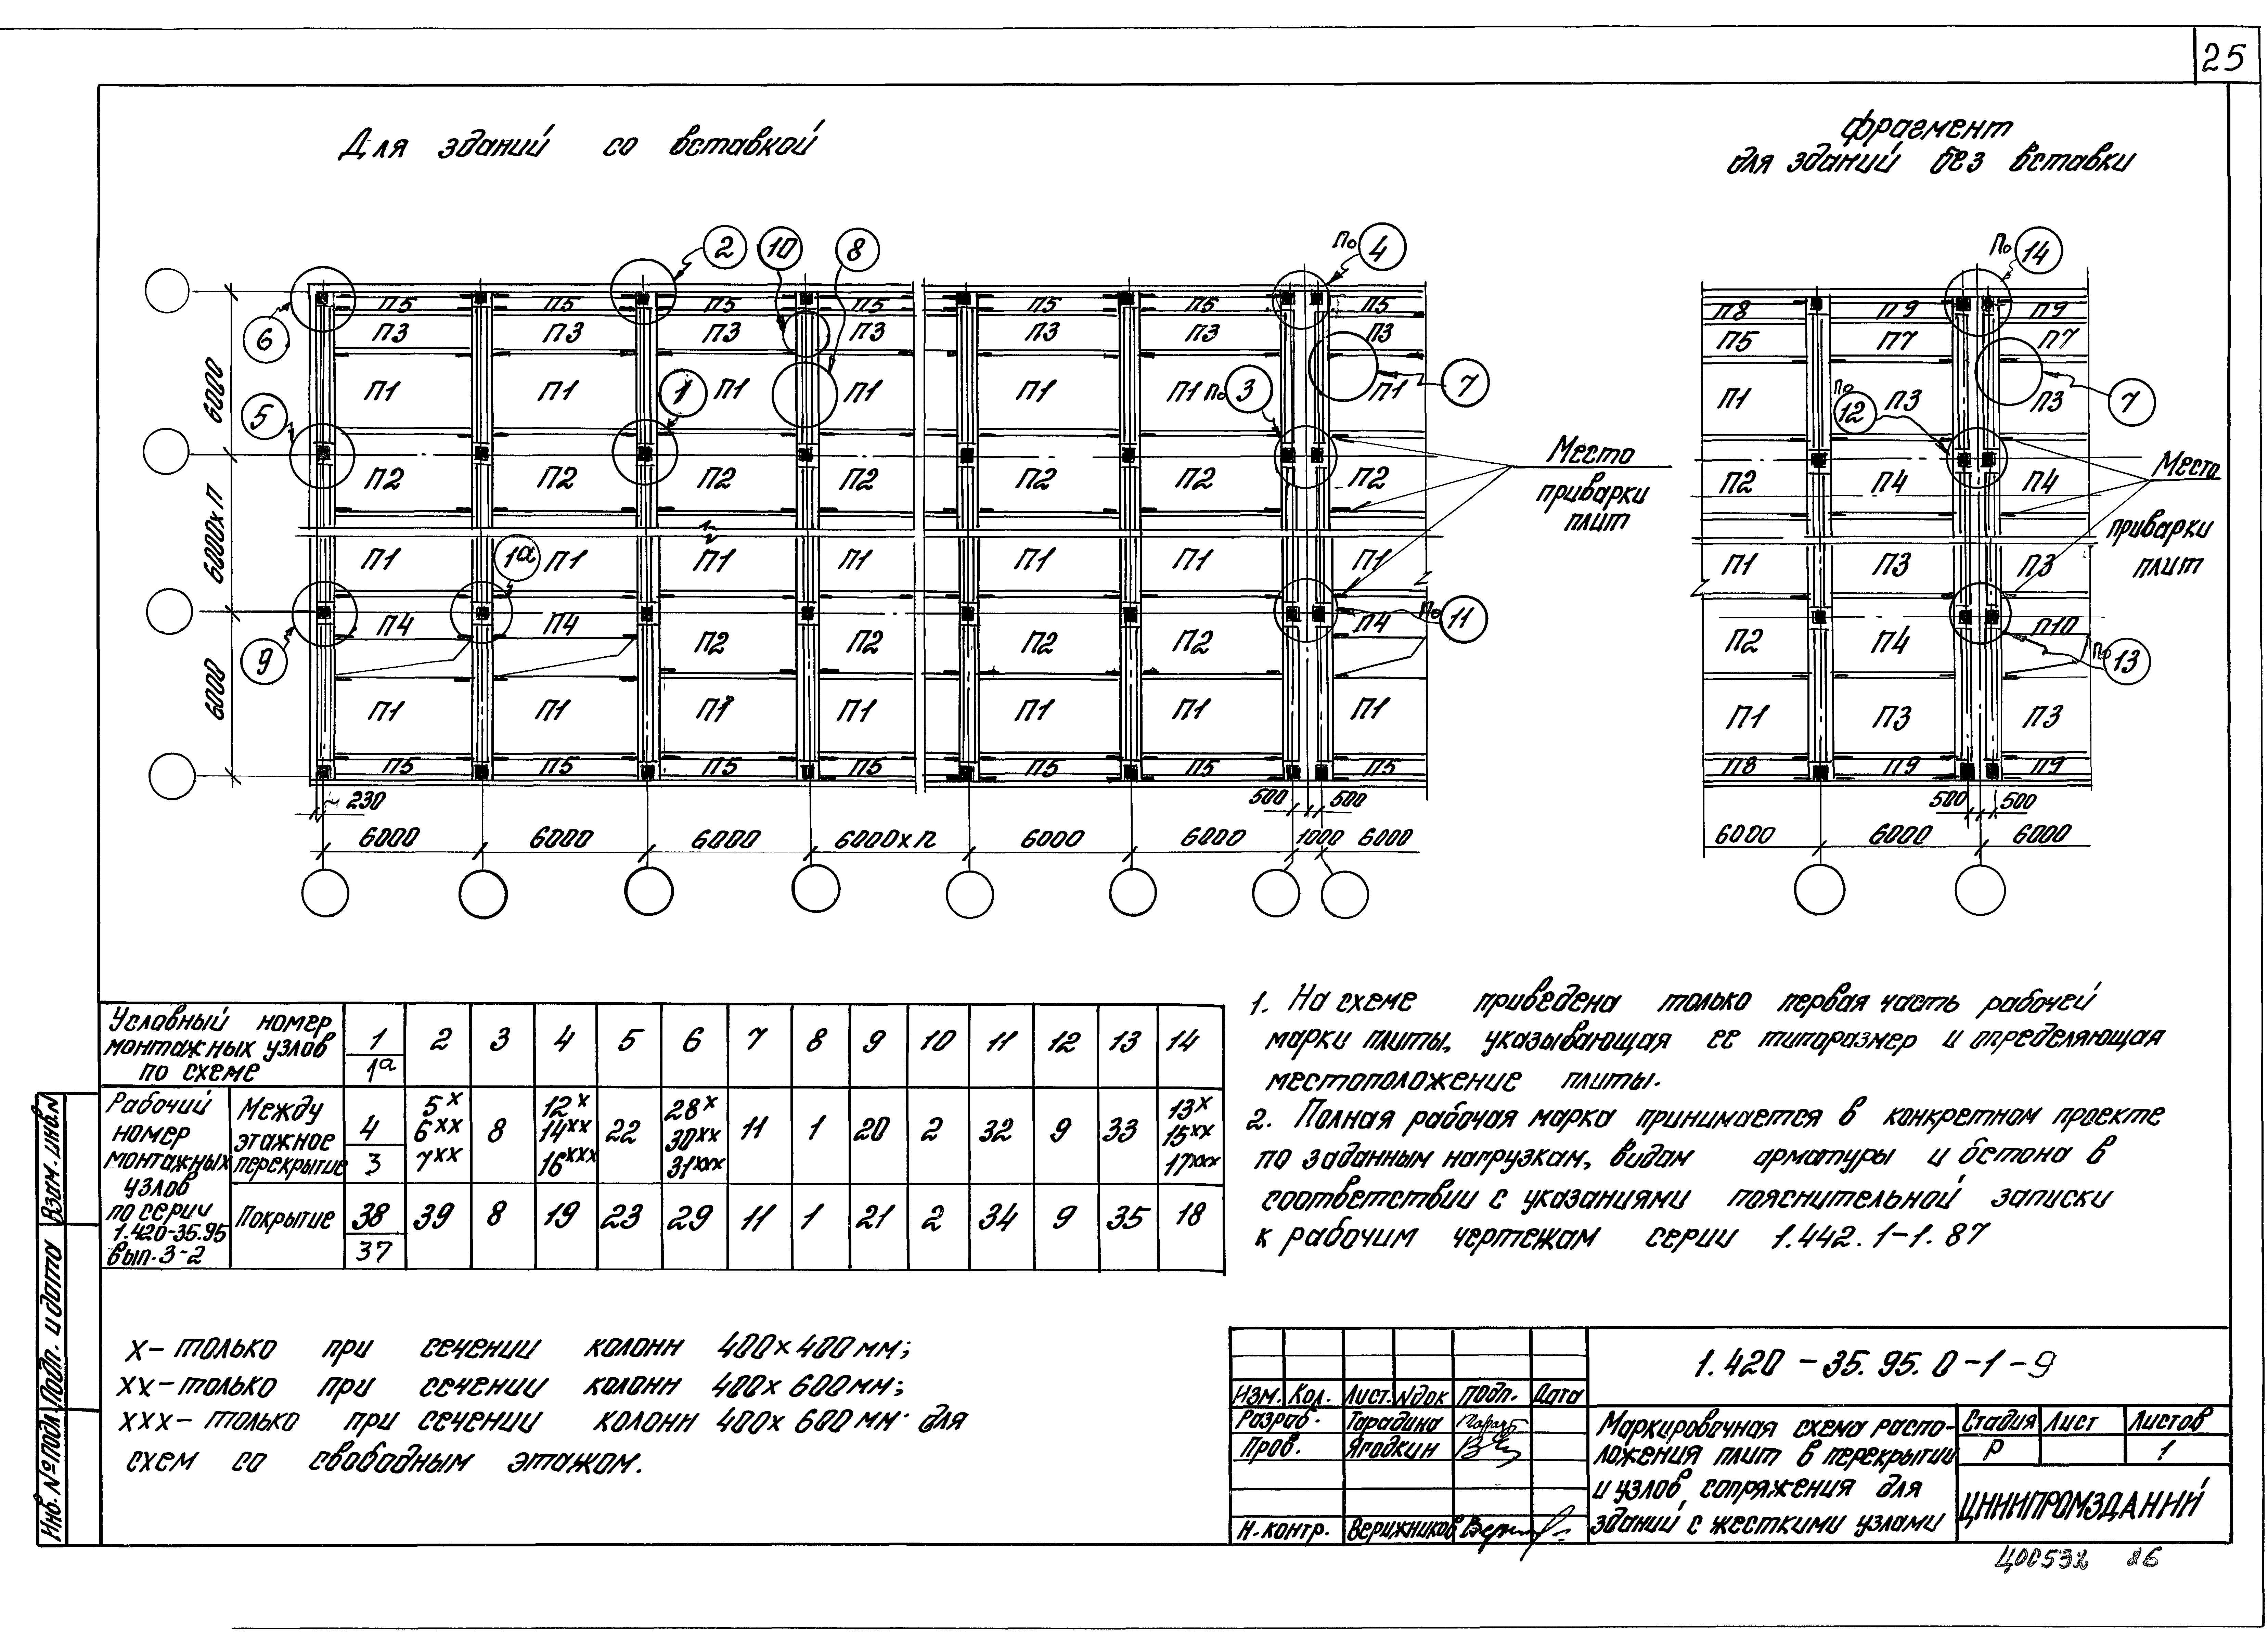 25
Для зданий со вставкой
фрагмент
для зданий без вставки
2 10 8 По 4 По 14
П5 П5 П5 П5 П5 П5 П5 П8 П9 П9
6 П3 П3 П3 П3 П3 П3 П3 П5 П7 П7
П1 П1 1 П1 П1 П1 П1 По 3 П1 7 П1 По 12 П3 П3 7
5
6000
Место
приварки
плит
Место
приварки
плит
П2 П2 П2 П2 П2 П2 П2 П2 П4 П4
6000хП
П1 1а П1 П1 П1 П1 П1 П1 П1 П3 П3
9 П4 П4 П2 П2 П2 П2 П4 По 11 П2 П4 П10 По 13
6000
П1 П1 П1 П1 П1 П1 П1 П1 П3 П3
П5 П5 П5 П5 П5 П5 П5 П8 П9 П9
230 500 500 500 500
6000 6000 6000 6000хП 6000 6000 1000 6000 6000 6000 6000
Условный номер
монтажных узлов
по схеме
1 2 3 4 5 6 7 8 9 10 11 12 13 14
1а
Рабочий
номер
монтажных
узлов
по серии
1.420-35.95
вып. 3-2
Между
этажное
перекрытие
4 5х 8 12х 22 28х 11 1 20 2 32 9 33 13х
6хх 14хх 30хх 15хх
3 7хх 16ххх 31ххх 17ххх
Покрытие 38 39 8 19 23 29 11 1 21 2 34 9 35 18
37
1. На схеме приведена только первая часть рабочей
марки плиты, указывающая ее типоразмер и определяющая
местоположение плиты.
2. Полная рабочая марка принимается в конкретном проекте
по заданным нагрузкам, видам арматуры и бетона в
соответствии с указаниями пояснительной записки
к рабочим чертежам серии 1.442.1-1.87
х- только при сечении колонн 400х400мм;
хх-только при сечении колонн 400х600мм;
ххх- только при сечении колонн 400х600мм для
схем со свободным этажом.
Взам. инв.N
Подп. и дата
Инв. № подл.
1.420-35.95.0-1-9
Изм. Кол. Лист. Nдок подп. Дата
Разраб. Тарадина
Пров. Ягодкин
Н.контр. Верижников
Маркировочная схема распо-
ложения плит в перекрытии
и узлов сопряжения для
зданий с жесткими узлами
Стадия Лист Листов
Р 1
ЦНИИПРОМЗДАНИЙ
Ц00532 26